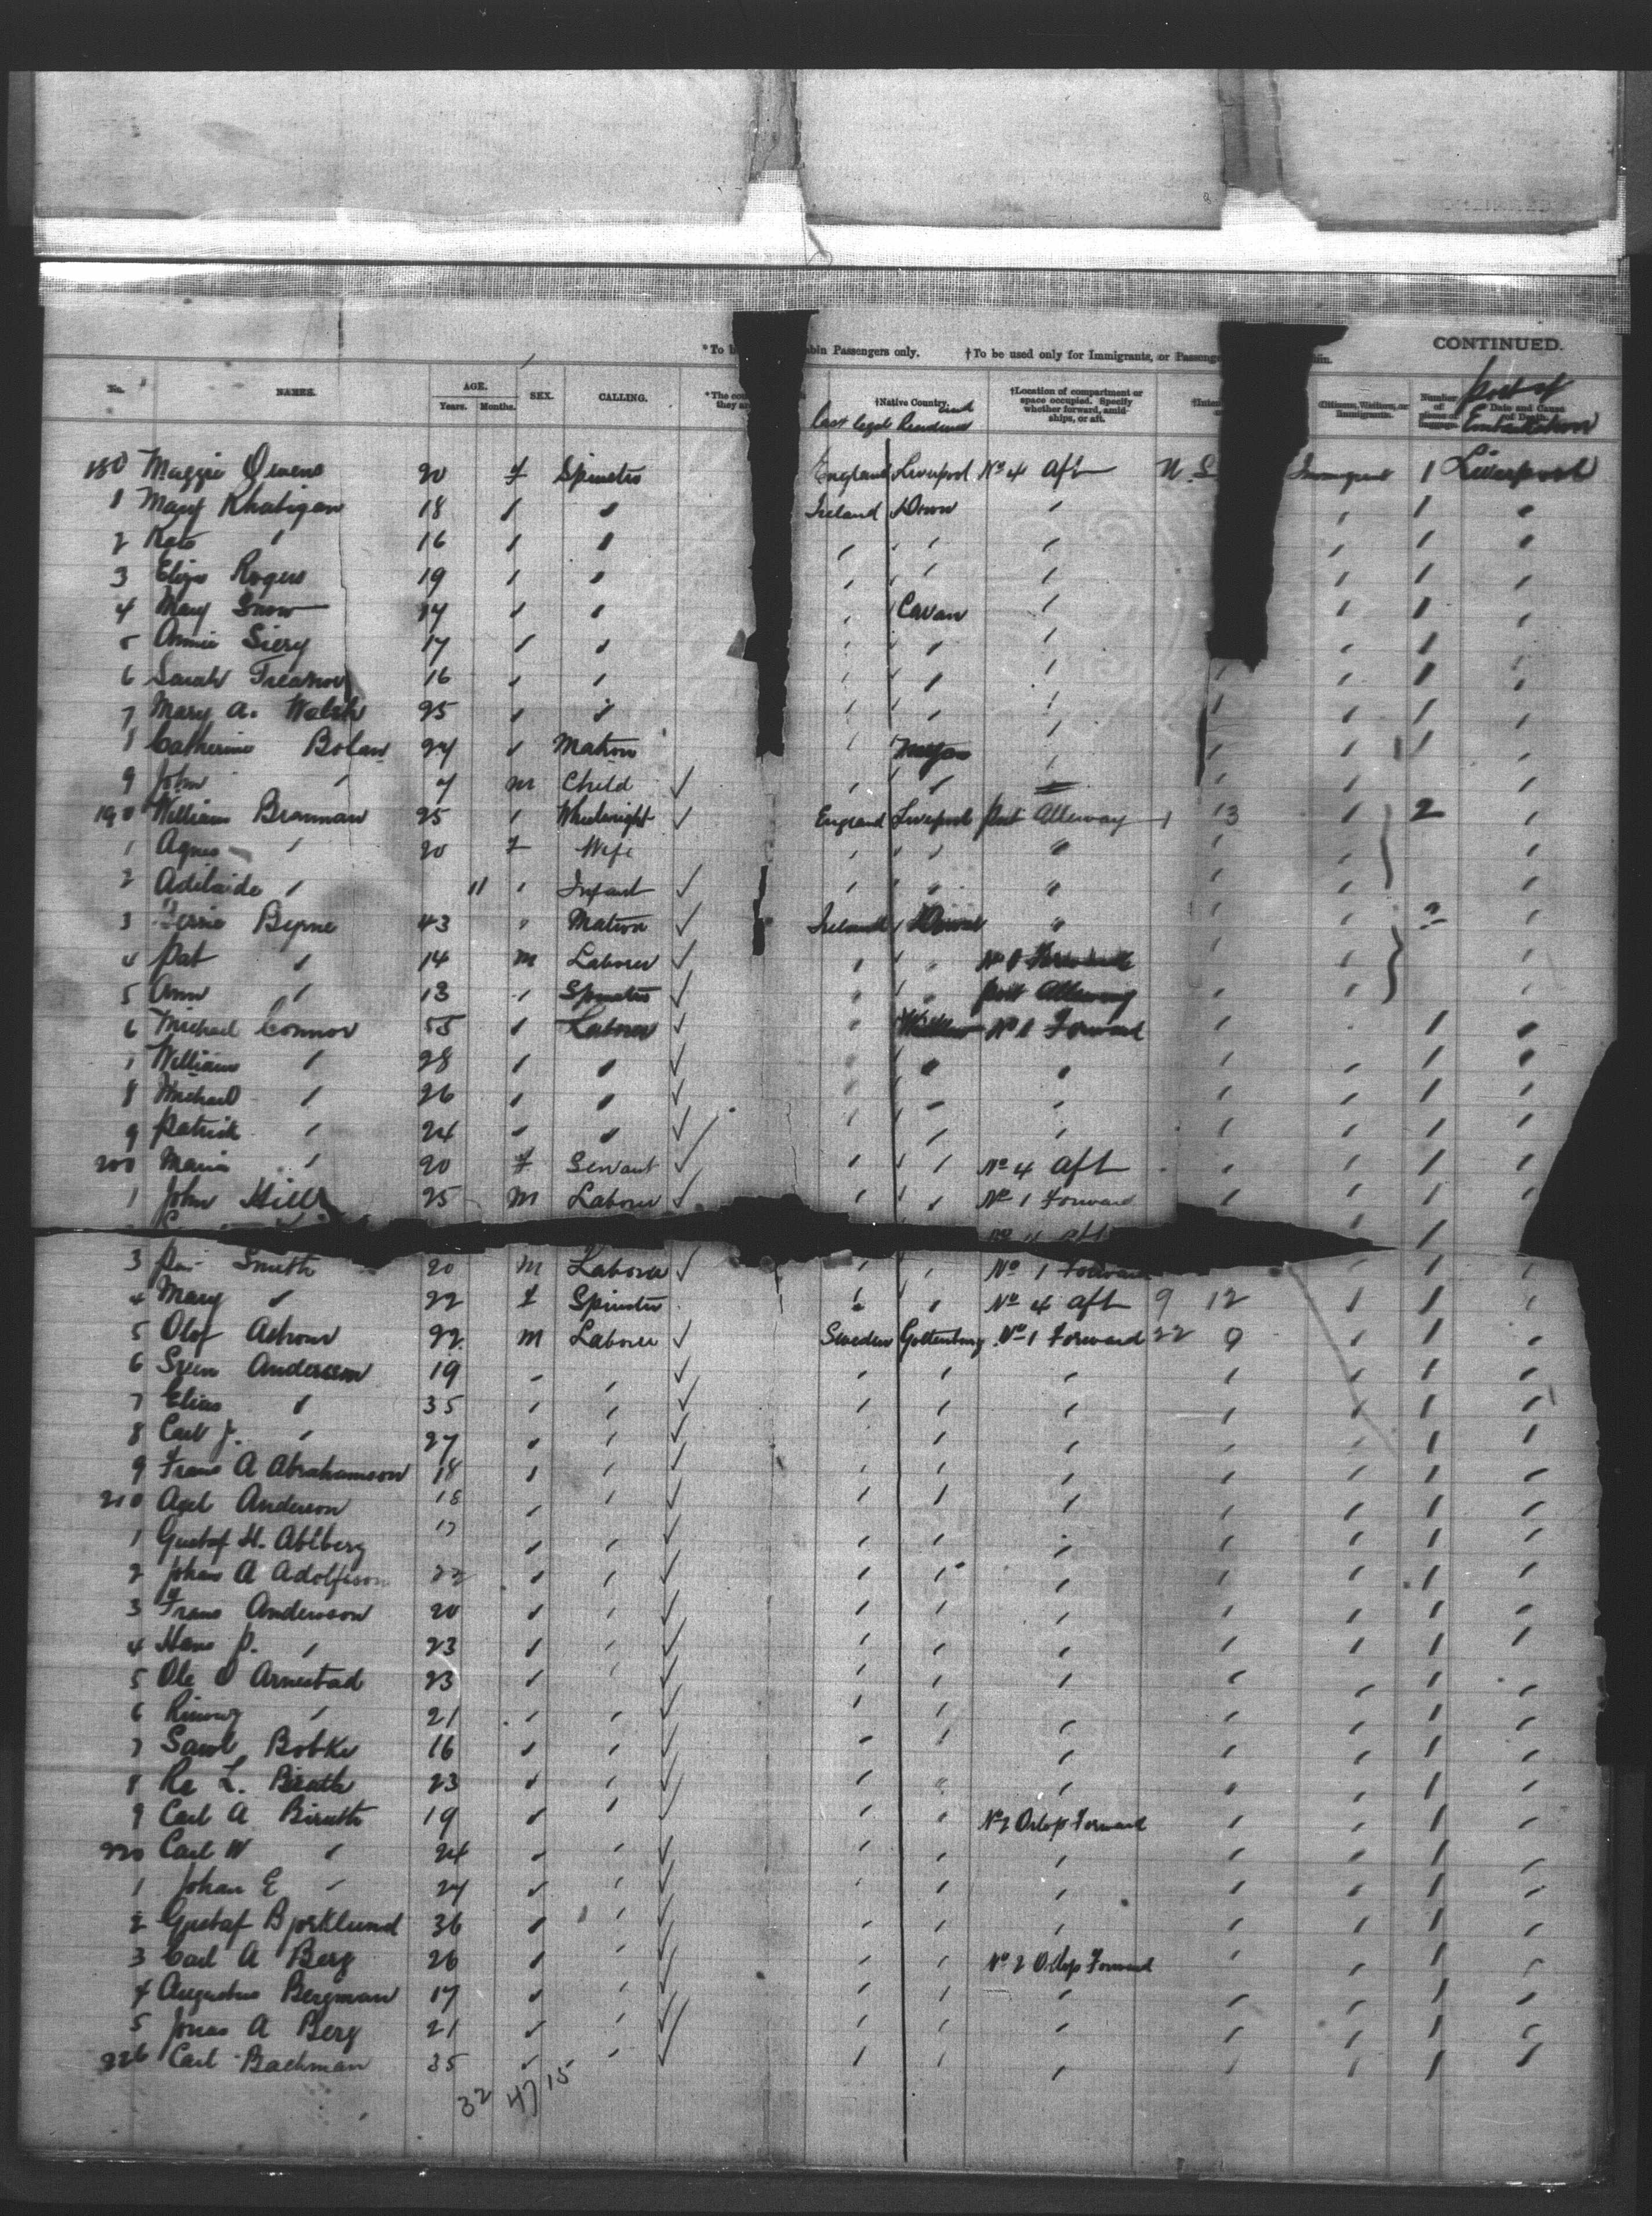 CONTINUED.
*To b bin Passengers only. †To be used only for Immigrants, or Passenge in.
No. NAMES. AGE. Years. Months. SEX. CALLING. *The cou they a †Native Country. †Location of compartment or space occupied. Specify whether forward, amidships, or aft. †Inter Citizens, Visitors, or Immigrants. Number of Date and Cause of Death.
Last legal Residence Port of Embarkation
180 Maggie Owens 20 f Spinster England Liverpool No 4 Aft N. S Immigrant 1 Liverpool
1 Mary Khatigan 18 " " Ireland Down " " 1 "
2 Kate " 16 " " " " " " 1 "
3 Eliza Rogers 19 " " " " " " 1 "
4 Mary Snow 17 " " " Cavan " " 1 "
5 Annie Siery 17 " " " " " " 1 "
6 Sarah Treanor 16 " " " " " " " 1 "
7 Mary A. Walsh 25 " " " " " " " 1 "
8 Catherine Bolan 24 " Matron " " " " 1 "
9 John " 4 m Child " " " " " "
190 William Brannan 25 " Wheelwright England Liverpool Port Alleway 13 " 2 "
1 Agnes " 20 f Wife " " " " " "
2 Adelaide " 11 " Infant " " " " " "
3 Byrne 43 " Matron Ireland " " " "
4 Pat " 14 m Laborer " " No 1 Forward " " "
5 Ann " 13 " Spinster " " Port Alleway " " "
6 Michael Connor 55 " Laborer " No 1 Forward " " 1 "
7 William " 28 " " " " " " " 1 "
8 Michael " 26 " " " " " " " 1 "
9 Patrick " 24 " " " " " " 1 "
200 Maria " 20 f Servant " " No 4 Aft " " 1 "
1 John Hill 25 m Laborer " " No 1 Forward " " 1 "
No 4 Aft " 1
3 Smith 20 m Laborer " " No 1 Forward " " 1 "
4 Mary " 22 f Spinster " " No 4 Aft 9 12 " 1 "
5 Olof Astrom 22 m Laborer Sweden Gottenburg No 1 Forward 22 9 " 1 "
6 Sven Andersson 19 " " " " " " " 1 "
7 Elias " 35 " " " " " " " 1 "
8 Carl J. " 27 " " " " " " 1 "
9 Frans A Abrahamson 18 " " " " " " " 1 "
210 Axel Anderson 18 " " " " " " " 1 "
1 Gustaf H. Ahlberg 17 " " " " " " " 1 "
2 Johan A Adolfson 22 " " " " " " " 1 "
3 Frans Andersson 20 " " " " " " " 1 "
4 Hans P. " 23 " " " " " " " 1 "
5 Ole O Arnestad 23 " " " " " " " 1 "
6 " 21 " " " " " " " 1 "
7 Saml Bobke 16 " " " " " " " 1 "
8 L. Birath 23 " " " " " " " 1 "
9 Carl A Birath 19 " " " " No 2 Orlop Forward " " 1 "
220 Carl W " 24 " " " " " " " 1 "
1 Johan E " 24 " " " " " " " 1 "
2 Gustaf Bjorklund 36 " " " " " " " 1 "
3 Carl A Berg 26 " " " " No 2 Orlop Forward " " 1 "
4 Augustus Bergman 17 " " " " " " " 1 "
5 Jonas A Berg 21 " " " " " " " 1 "
226 Carl Bachman 35 " " " " " " " 1 "
32 47 15